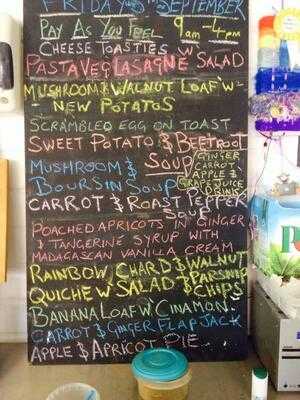 FRIDAY 5th SEPTEMBER
PAY AS YOU FEEL 9am-4pm
CHEESE TOASTIES W
PASTA VEG LASAGNE SALAD
MUSHROOM & WALNUT LOAF W
NEW POTATOS
SCRAMBLED EGG ON TOAST
SWEET POTATO & BEETROOT
SOUP
GINGER
CARROT
APPLE &
GRAPE JUICE
DRINK
MUSHROOM &
BOURSIN SOUP
CARROT & ROAST PEPPER
SOUP
POACHED APRICOTS IN GINGER
& TANGERINE SYRUP WITH
MADAGASCAN VANILLA CREAM
RAINBOW CHARD & WALNUT
QUICHE W SALAD & PARSNIP
CHIPS
BANANA LOAF W CINAMON
CARROT & GINGER FLAPJACK
APPLE & APRICOT PIE